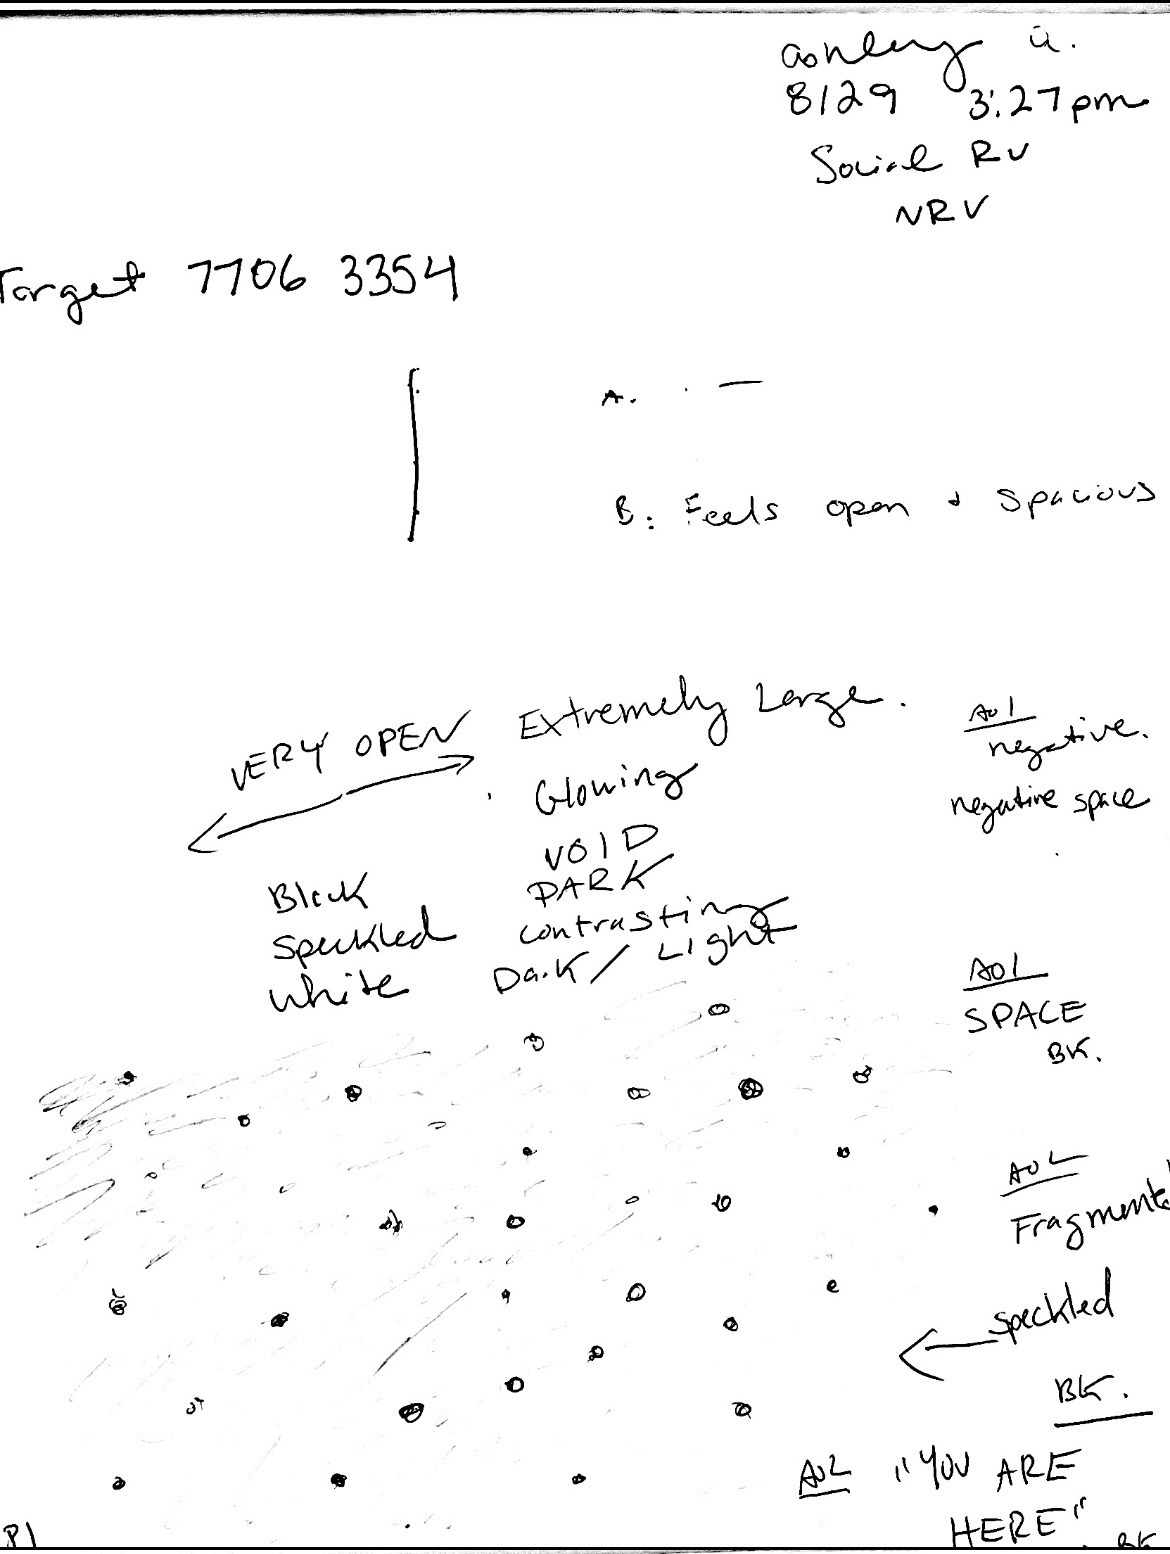 ashley u.
8/29 3:27pm
Social RV
NRV
Target 7706 3354
A. . —
B: Feels open & spacious
VERY OPEN
Extremely Large.
Glowing
VOID
DARK
contrasting
Dark / Light
Black
Speckled
white
AOL
negative.
negative space
AOL
SPACE
BK.
AOL
Fragmente
speckled
BK.
AOL "YOU ARE
HERE"
BK
P1